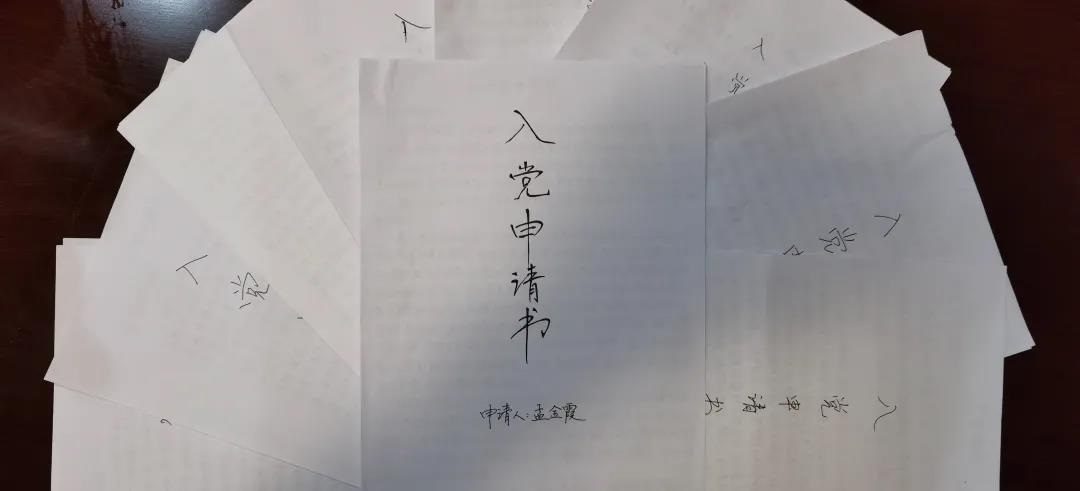 入党申请书
申请人:孟金霞
入
入
党
入
党
入党
入党申请书